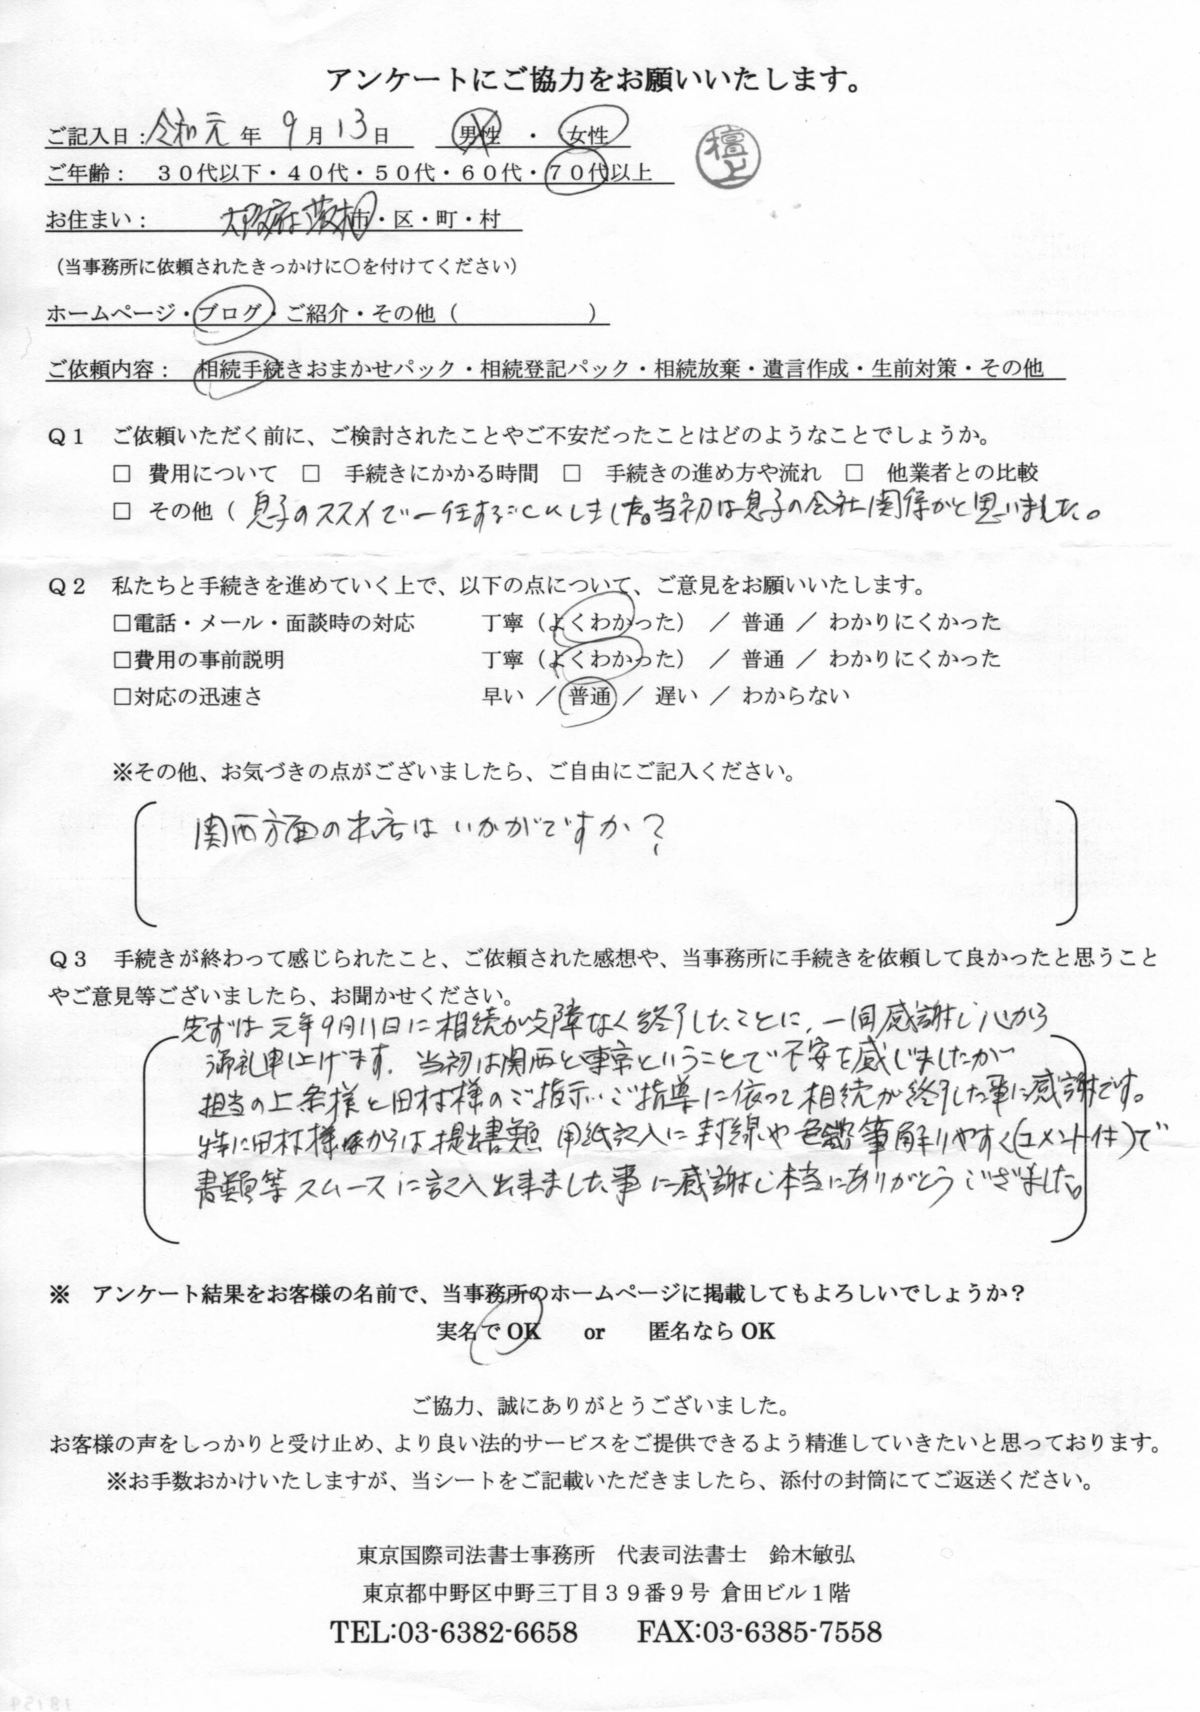 アンケートにご協力をお願いいたします。
ご記入日：令和元年 9月13日 男性 ・ 女性
檀上
ご年齢： 30代以下・40代・50代・60代・70代以上
お住まい： 大阪府 市・区・町・村
（当事務所に依頼されたきっかけに○を付けてください）
ホームページ・ブログ・ご紹介・その他（ ）
ご依頼内容： 相続手続きおまかせパック・相続登記パック・相続放棄・遺言作成・生前対策・その他
Q1 ご依頼いただく前に、ご検討されたことやご不安だったことはどのようなことでしょうか。
□ 費用について □ 手続きにかかる時間 □ 手続きの進め方や流れ □ 他業者との比較
□ その他（息子のススメで一任することにしました。当初は息子の会社関係かと思いました。
Q2 私たちと手続きを進めていく上で、以下の点について、ご意見をお願いいたします。
□電話・メール・面談時の対応 丁寧（よくわかった） ／ 普通 ／ わかりにくかった
□費用の事前説明 丁寧（よくわかった） ／ 普通 ／ わかりにくかった
□対応の迅速さ 早い ／ 普通 ／ 遅い ／ わからない
※その他、お気づきの点がございましたら、ご自由にご記入ください。
関西方面の支店はいかがですか？
Q3 手続きが終わって感じられたこと、ご依頼された感想や、当事務所に手続きを依頼して良かったと思うこと
やご意見等ございましたら、お聞かせください。
先ずは元年9月11日に相続が支障なく終了したことに、一同感謝し心から
御礼申上げます。当初は関西と東京ということで不安を感じましたが
担当の上条様と田村様のご指示・ご指導に依って相続が終了した事に感謝です。
特に田村様からは提出書類 用紙記入に封線や色鉛筆解りやすく(コメント付)で
書類等スムースに記入出来ました事に感謝し本当にありがとうございました。
※ アンケート結果をお客様の名前で、当事務所のホームページに掲載してもよろしいでしょうか？
実名でOK or 匿名ならOK
ご協力、誠にありがとうございました。
お客様の声をしっかりと受け止め、より良い法的サービスをご提供できるよう精進していきたいと思っております。
※お手数おかけいたしますが、当シートをご記載いただきましたら、添付の封筒にてご返送ください。
東京国際司法書士事務所 代表司法書士 鈴木敏弘
東京都中野区中野三丁目39番9号 倉田ビル1階
TEL:03-6382-6658 FAX:03-6385-7558